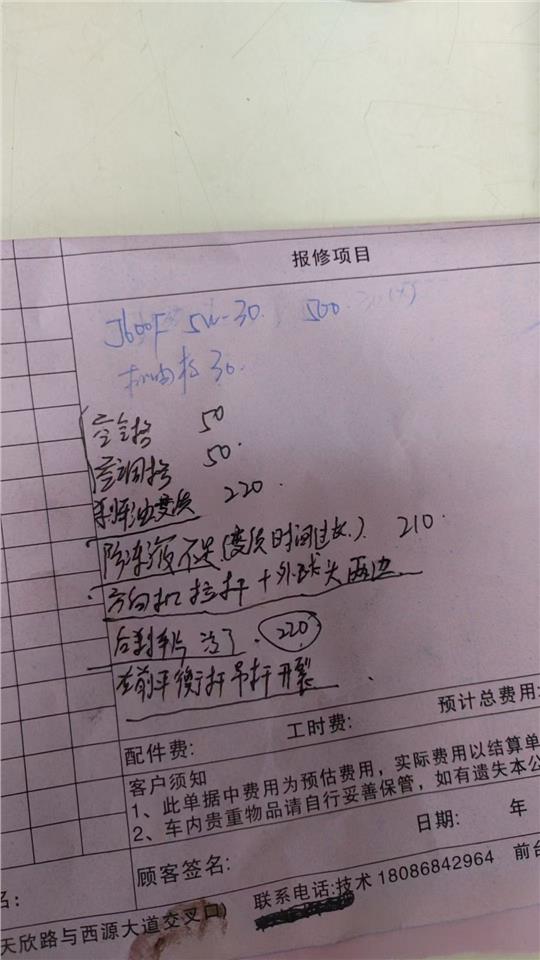 报修项目
J600F 5W-30. 500.
机油格 30.
空气格 50
空调格 50.
刹车油变质 220.
防冻液不足(变质时间过长) 210.
方向机拉杆+外球头两边
后刹车片 薄了. 220
左前平衡杆吊杆开裂.
配件费: 工时费: 预计总费用:
客户须知
1、此单据中费用为预估费用,实际费用以结算单
2、车内贵重物品请自行妥善保管,如有遗失本公
日期: 年
顾客签名:
名:
天欣路与西源大道交叉口) 联系电话:技术 18086842964 前台